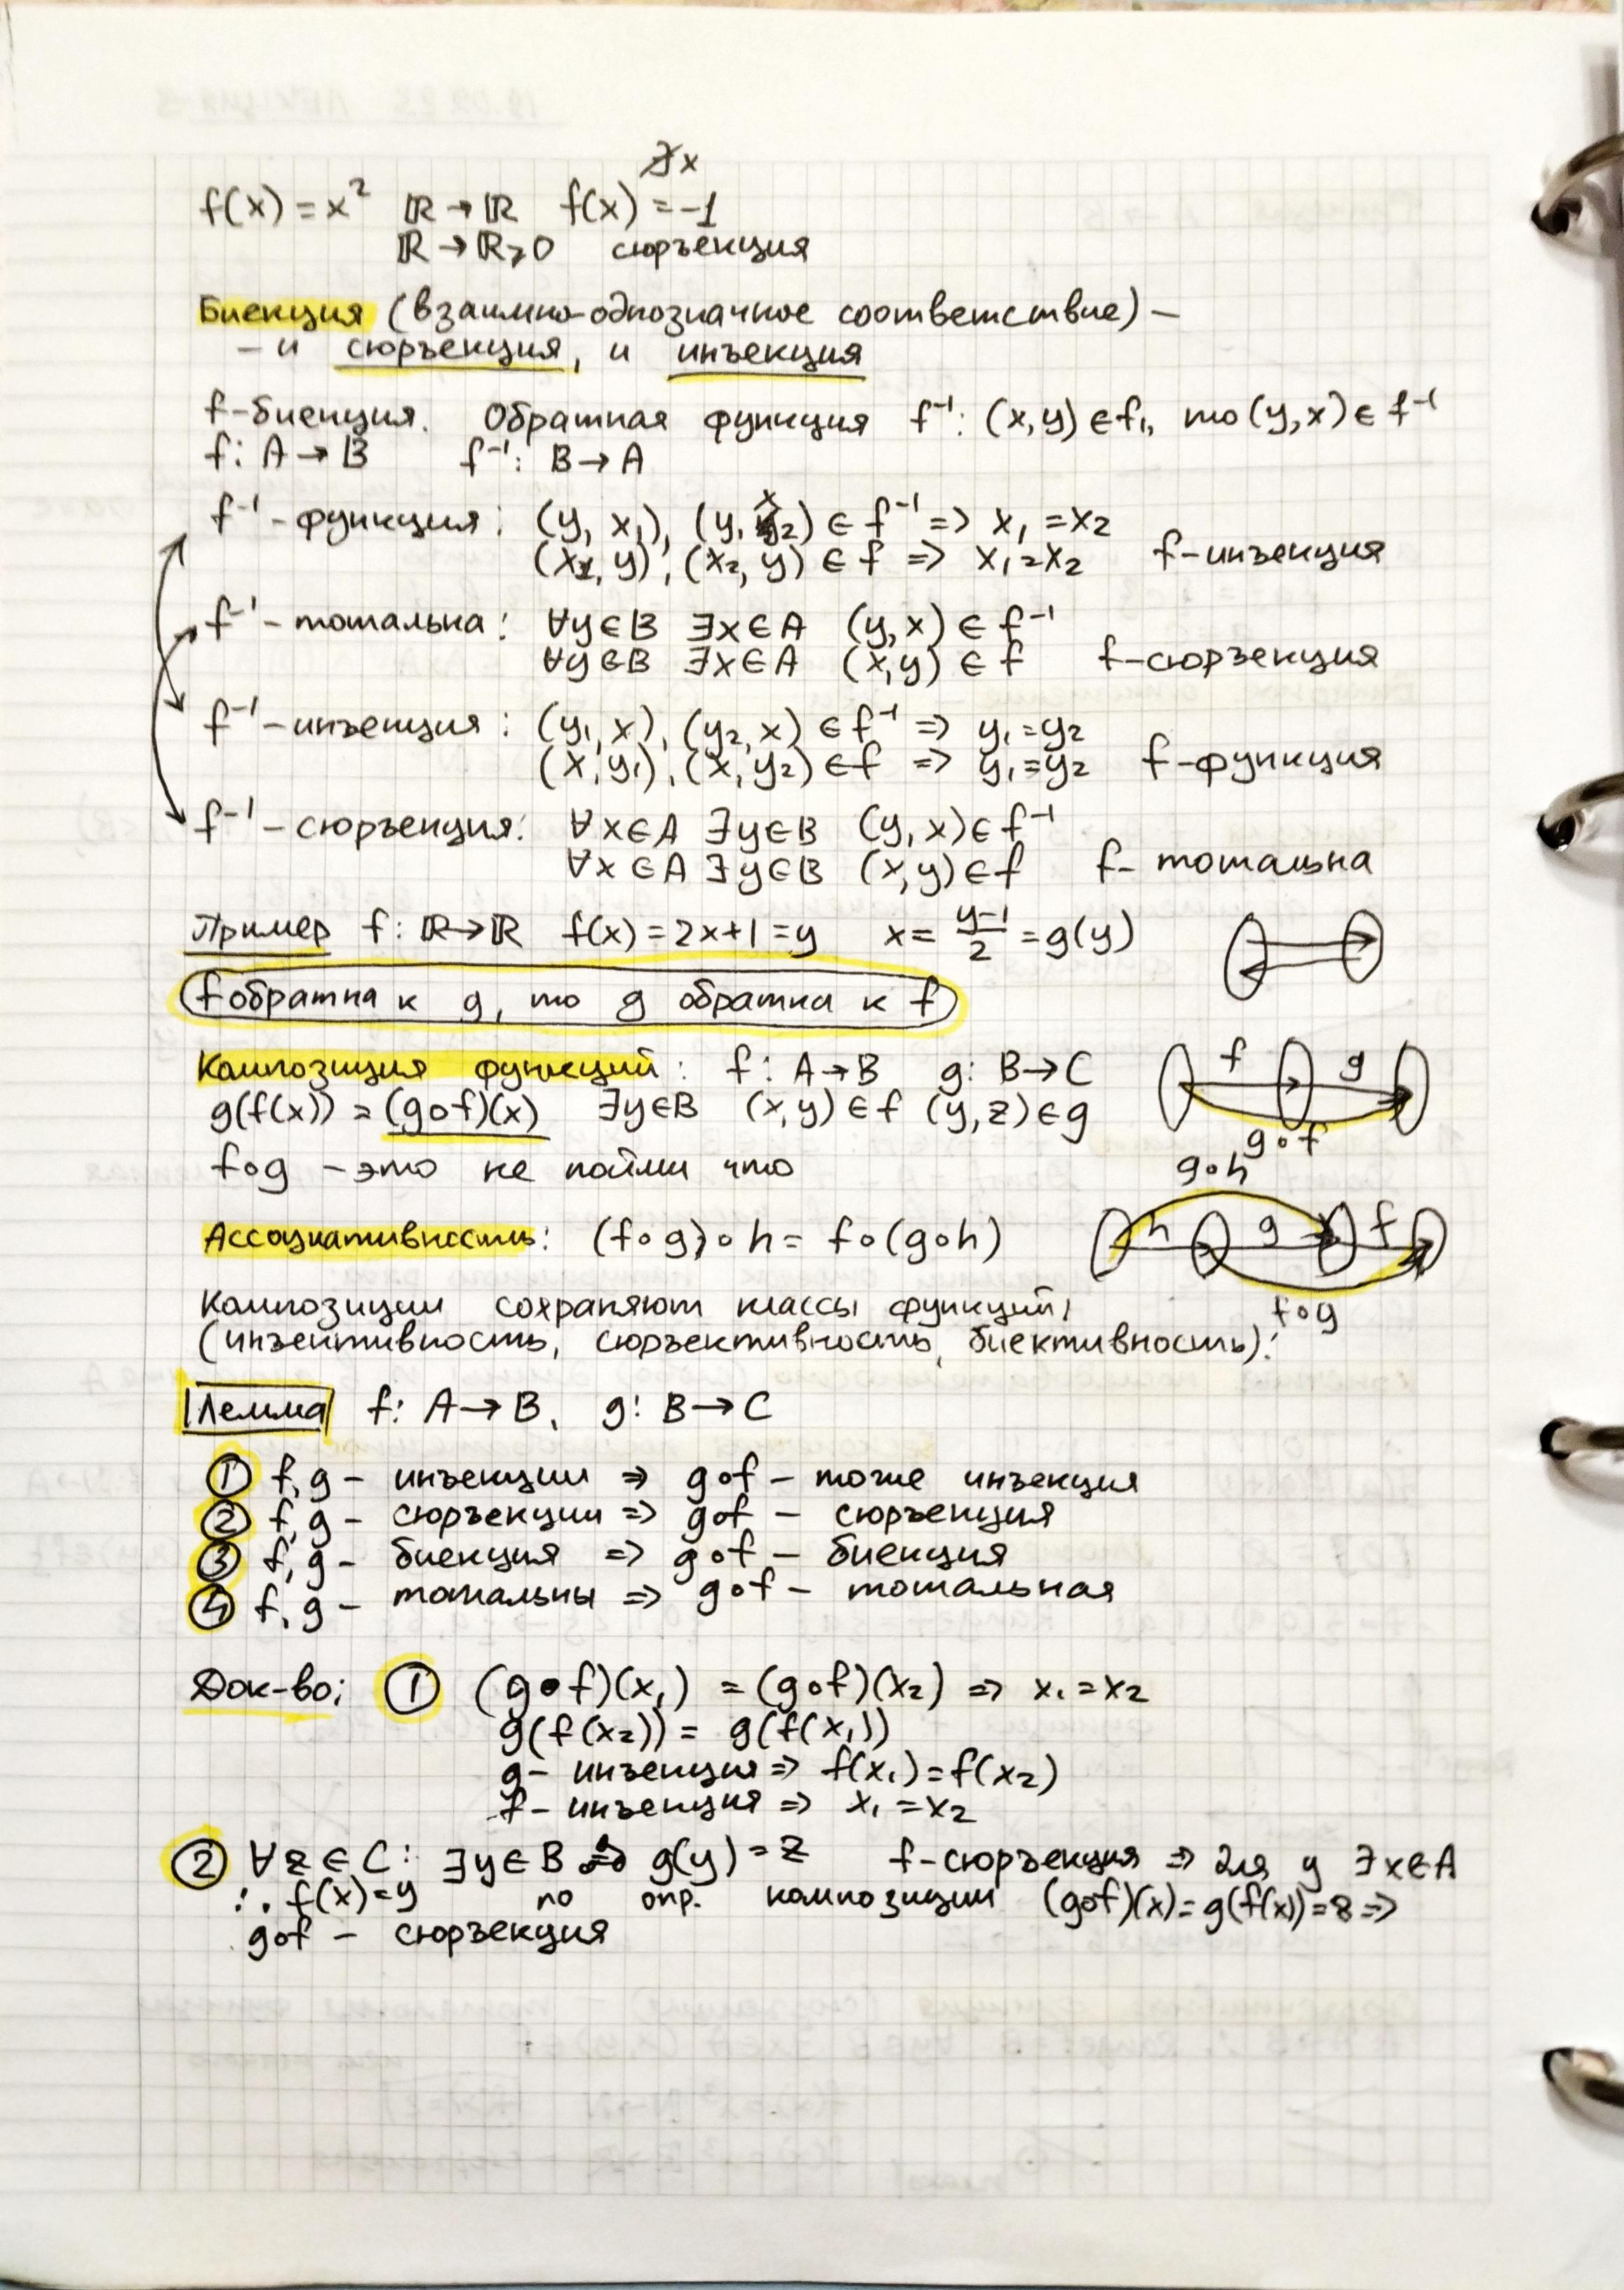 ∄x
f(x) = x² ℝ→ℝ f(x) = -1
ℝ→ℝ≥0 сюръекция
Биекция (взаимно-однозначное соответствие) –
– и сюръекция, и инъекция
f-биекция. Обратная функция f⁻¹: (x,y) ∈ f, то (y,x) ∈ f⁻¹
f: A→B f⁻¹: B→A
f⁻¹-функция: (y, x₁), (y, x₂) ∈ f⁻¹ => x₁ = x₂
(x₁, y), (x₂, y) ∈ f => x₁ = x₂ f-инъекция
f⁻¹-тотальна: ∀y∈B ∃x∈A (y,x) ∈ f⁻¹
∀y∈B ∃x∈A (x,y) ∈ f f-сюръекция
f⁻¹-инъекция: (y₁,x), (y₂,x) ∈ f⁻¹ => y₁=y₂
(x,y₁), (x,y₂) ∈ f => y₁=y₂ f-функция
f⁻¹-сюръекция: ∀x∈A ∃y∈B (y,x) ∈ f⁻¹
∀x∈A ∃y∈B (x,y) ∈ f f- тотальна
Пример f: ℝ→ℝ f(x) = 2x+1 = y x = (y-1)/2 = g(y)
f обратна к g, то g обратна к f
Композиция функций: f: A→B g: B→C
f g
g(f(x)) = (g∘f)(x) ∃y∈B (x,y) ∈ f (y,z) ∈ g
g∘f
f∘g – это не пойми что
g∘h
Ассоциативность: (f∘g)∘h = f∘(g∘h)
h g f
f∘g
Композиции сохраняют классы функций,
(инъективность, сюръективность, биективность):
Лемма f: A→B, g: B→C
① f,g – инъекции => g∘f – тоже инъекция
② f,g – сюръекции => g∘f – сюръекция
③ f,g – биекция => g∘f – биекция
④ f,g – тотальны => g∘f – тотальная
Док-во: ① (g∘f)(x₁) = (g∘f)(x₂) => x₁ = x₂
g(f(x₂)) = g(f(x₁))
g- инъекция => f(x₁) = f(x₂)
f- инъекция => x₁ = x₂
② ∀z∈C: ∃y∈B g(y) = z f-сюръекция => для y ∃x∈A
: f(x)=y по опр. композиции (g∘f)(x) = g(f(x)) = z =>
g∘f – сюръекция